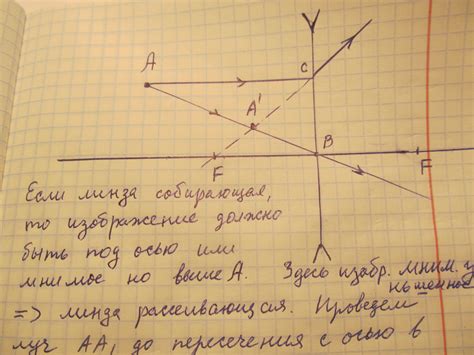 A
C
A'
B
F
F
Если линза собирающая,
то изображение должно
быть под осью или
мнимое но выше А. Здесь изобр. мним. и
=> линза рассеивающая. Проведем
луч АА, до пересечения с осью в